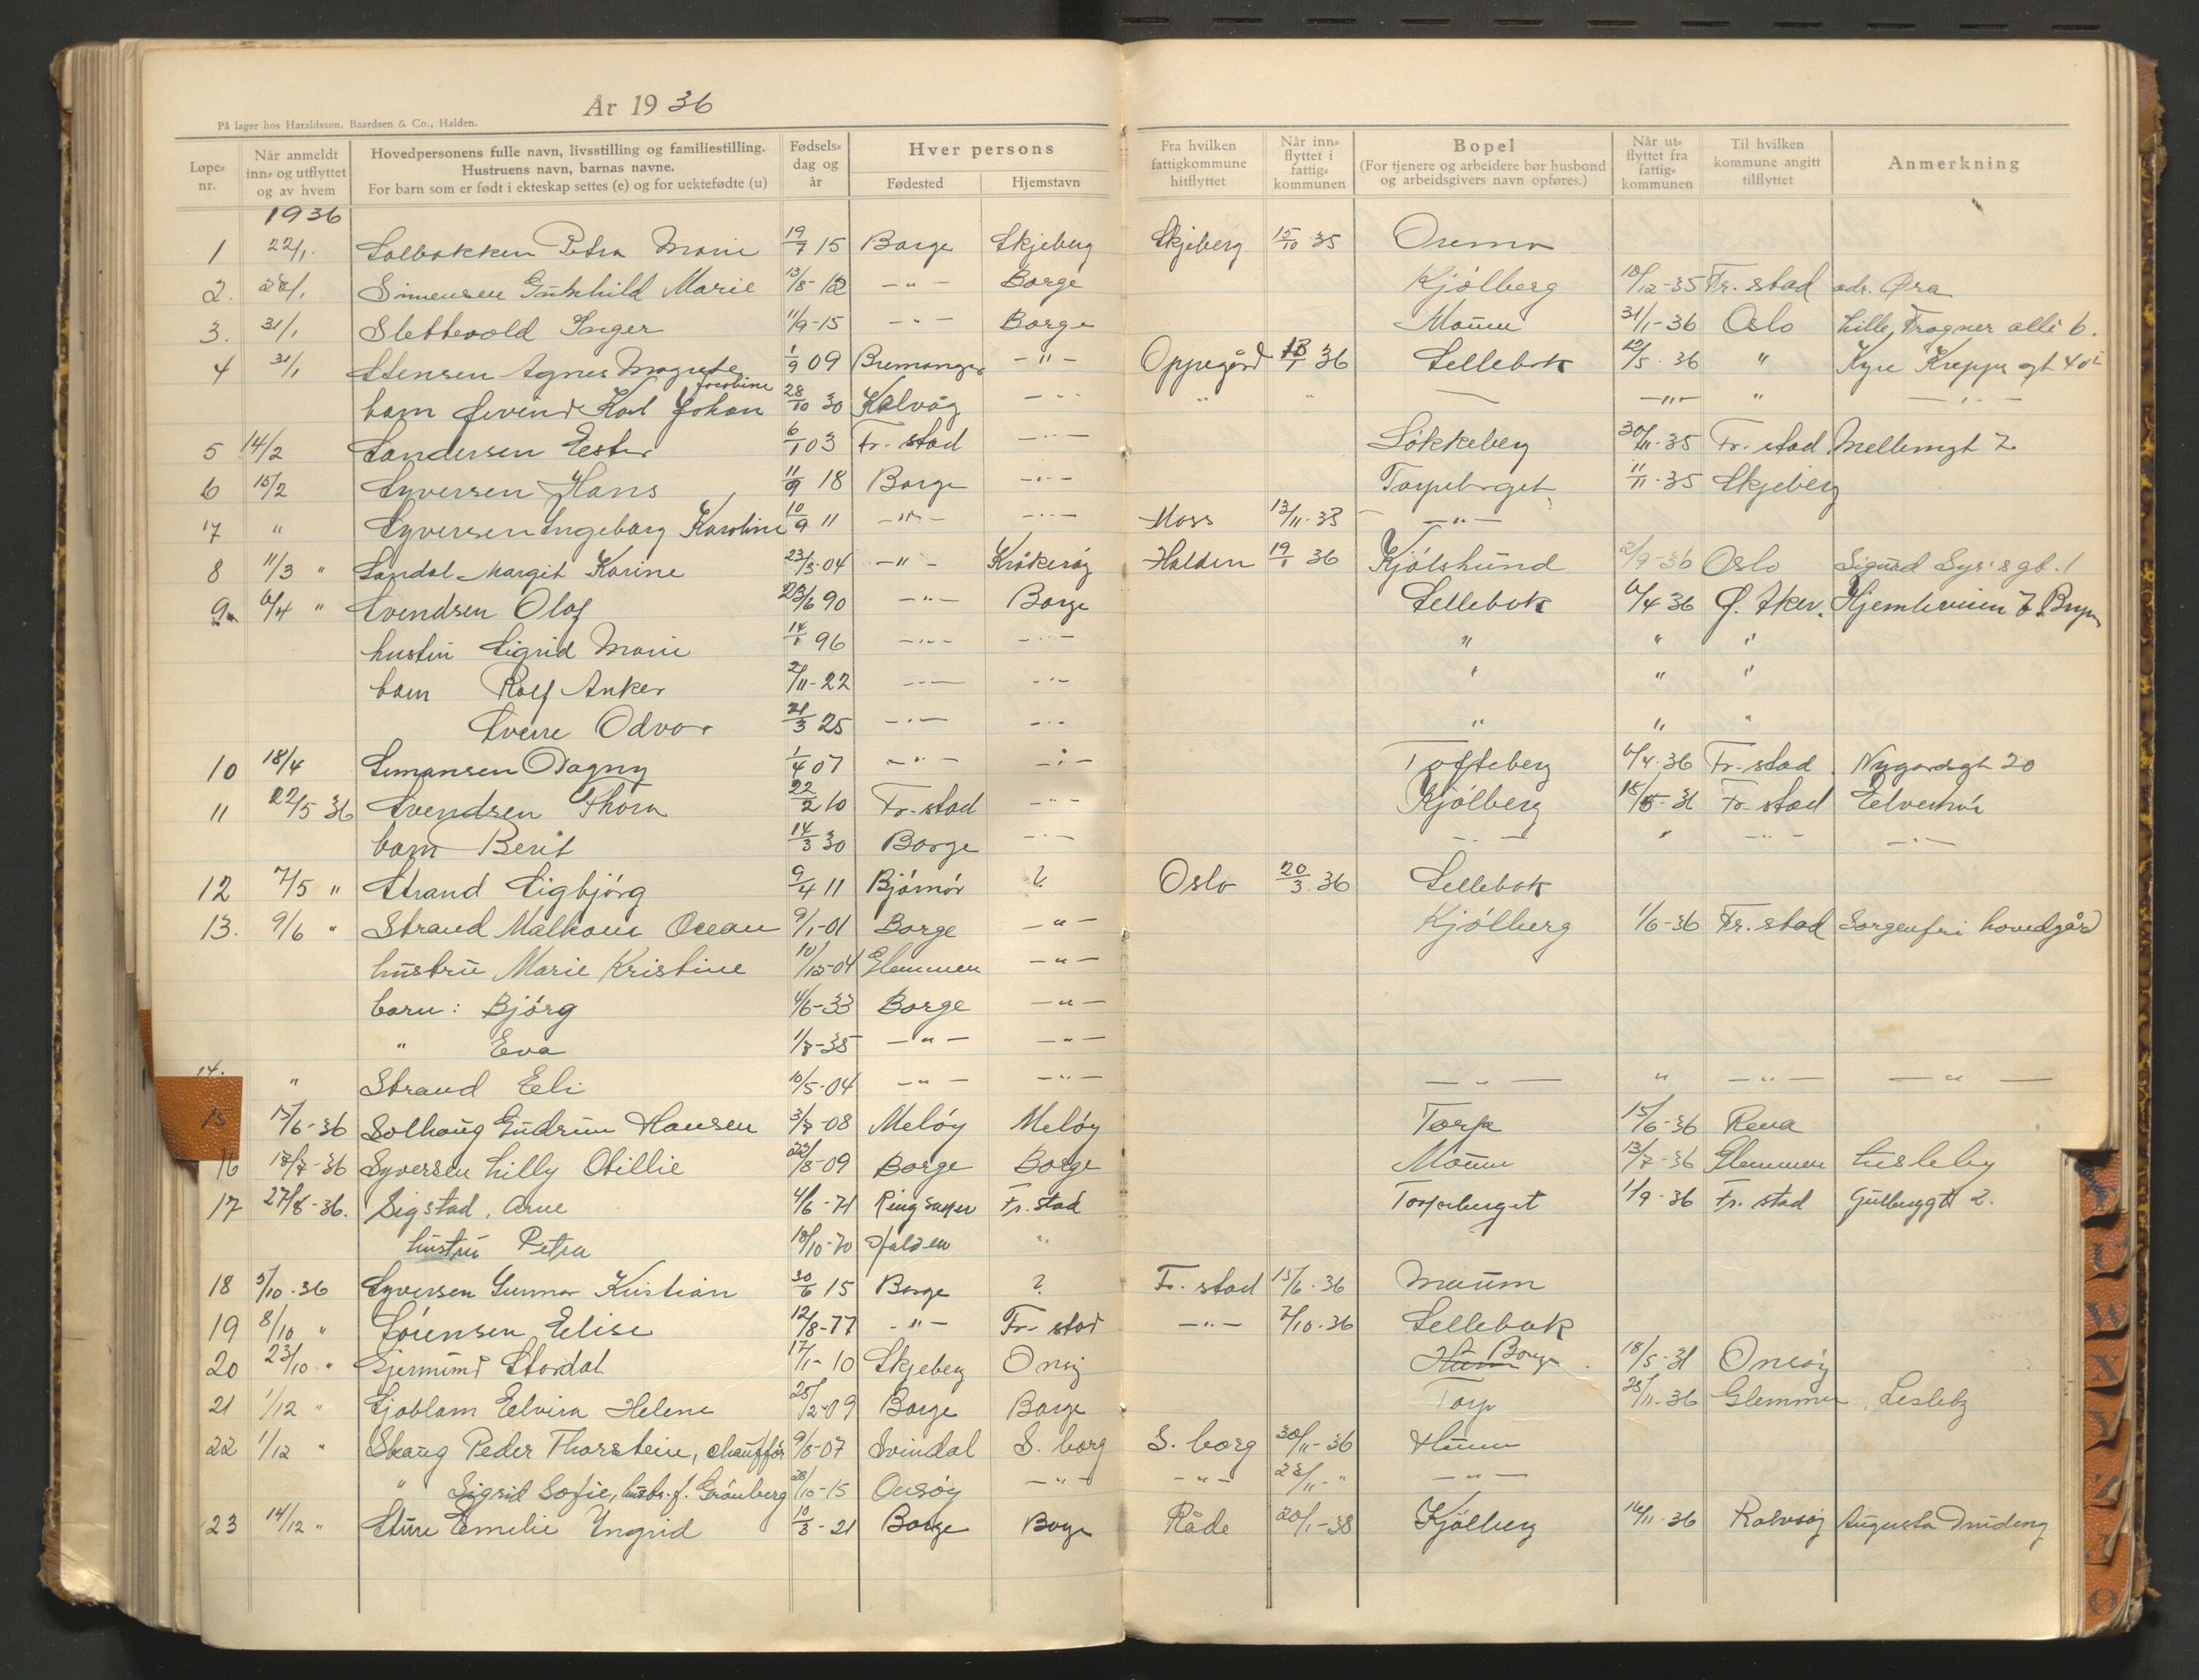 År 1936
På lager hos Haraldsson, Baardsen & Co., Halden.
Løpe-nr. | Når anmeldt inn- og utflyttet og av hvem | Hovedpersonens fulle navn, livsstilling og familiestilling. Hustruens navn, barnas navne. For barn som er født i ekteskap settes (e) og for uektefødte (u) | Fødsels-dag og år | Hver persons Fødested | Hjemstavn | Fra hvilken fattigkommune hitflyttet | Når inn-flyttet i fattig-kommunen | Bopel (For tjenere og arbeidere bør husbond og arbeidsgivers navn opføres.) | Når ut-flyttet fra fattig-kommunen | Til hvilken kommune angitt tilflyttet | Anmerkning
1936
1 22/1. Solbakken Petra Marie 19/7 15 Borge Skjeberg Skjeberg 15/10 35
2. 28/1 Simensen Gunhild Marie 13/8-12 -"- Borge Kjølberg 10/12-35 Fr. stad adr. Øra
3. 31/1 Slettevold Inger 11/9-15 -"- Borge Moum 31/1-36 Oslo Lille Frogner alle 6.
4 31/1 Stensen Agnes Magnte Jocobine 1/9 09 Bremanger -"- Oppegård 36 Sellebak /5. 36 "
barn Øivind Karl Johan 28/10 30 Kalvåg -"- " " — -"- " -"-
5 14/2 Sandersen Ester 6/1 03 Fr. stad -"- Løkkeberg 30/11-35 Fr. stad Mellemgt 7
6 15/2 Syversen Hans 11/9 18 Borge -"- Torpeberget 11/11-35 Skjeberg
7 " Syversen Ingeborg Karoline 10/9 11 -"- -"- Moss 13/11-35 -"-
8 11/3 " Sandal Margit Karine 23/3-04 -"- Kråkerøy Halden 19/1 36 Kjølshund 2/9-36 Oslo Sigurd Syr's gt. 1
9. 6/4 " Svendsen Olaf 23/6 90 -"- Borge Sellebak 6/4 36 Ø. Aker. Hjemliveien 7 Bryn
hustru Sigrid Marie 14/1 96 -"- -"- " " "
barn Rolf Anker 2/11-22 -"- -"- " " "
Sverre Odvar 21/3 25 -"- -"- " " "
10 18/4 Simansen Dagny 1/4 07 -"- -"- Tofteberg 6/4-36 Fr. stad Nygårdsgt 20
11 22/5 36 Svendsen Thora 22/2 10 Fr. stad -"- Kjølberg 15/5-36 Fr. stad
barn Berit 14/3 30 Borge -"- -"- " -"- -"-
12 7/5 " Strand Sigbjørg 9/4 11 Bjørnør ? Oslo 20/3. 36 Sellebak
13. 9/6 " Strand Malkom Ocean 9/1-01 Borge -"- Kjølberg 1/6-36 Fr. stad Sorgenfri hovedgård
hustru Marie Kristine 10/12-04 Glemmen -"-
barn: Bjørg 4/6-33 Borge -"-
" Eva 1/7-35 -"- -"-
14. " Strand Eli 10/5-04 -"- -"- -"- " -"- -"-
15 15/6-36 Solhaug Gudrun Hansen 3/7-08 Meløy Meløy Torp 15/6-36 Rena
16 17/7-36 Syversen Lilly Otillie 22/8-09 Borge Borge Moum 13/7-36 Glemmen Lisleby
17 27/8-36. Sigstad, Arne 4/6-71 Ringsaker Fr. stad Torpeberget 1/9-36 Fr. stad
hustru Petra 18/10-70 Halden "
18 5/10-36 Syversen Gunnar Kristian 30/6 15 Borge ? Fr. stad 15/6. 36 Moum
19 8/10 " Sørensen Elise 12/8-77 -"- Fr. stad -"- 2/10-36 Sellebak
20 23/10 " Gjermund Stordal 17/1-10 Skjeberg Onsøy Borge 18/5-31 Onsøy
21 1/12 " Sjøblom Elvira Helene 25/2-09 Borge Borge Torp 25/11-36 Glemmen, Lisleby
22 1/12 " Skaug Peder Thorstein, chauffør 9/8-07 Svindal S. borg S. borg 30/11-36 Hunn
" Sigrid Sofie, hustr. f. Grønberg 28/10-15 Onsøy -"- -"- 28/11-" -"-
23 14/12 " Sture Emilie Yngrid 10/3-21 Borge Borge Råde 20/1-38 Kjølberg 14/11-36 Rolvsøy Augusta
U
W
X
Y
Z
Æ
Ø